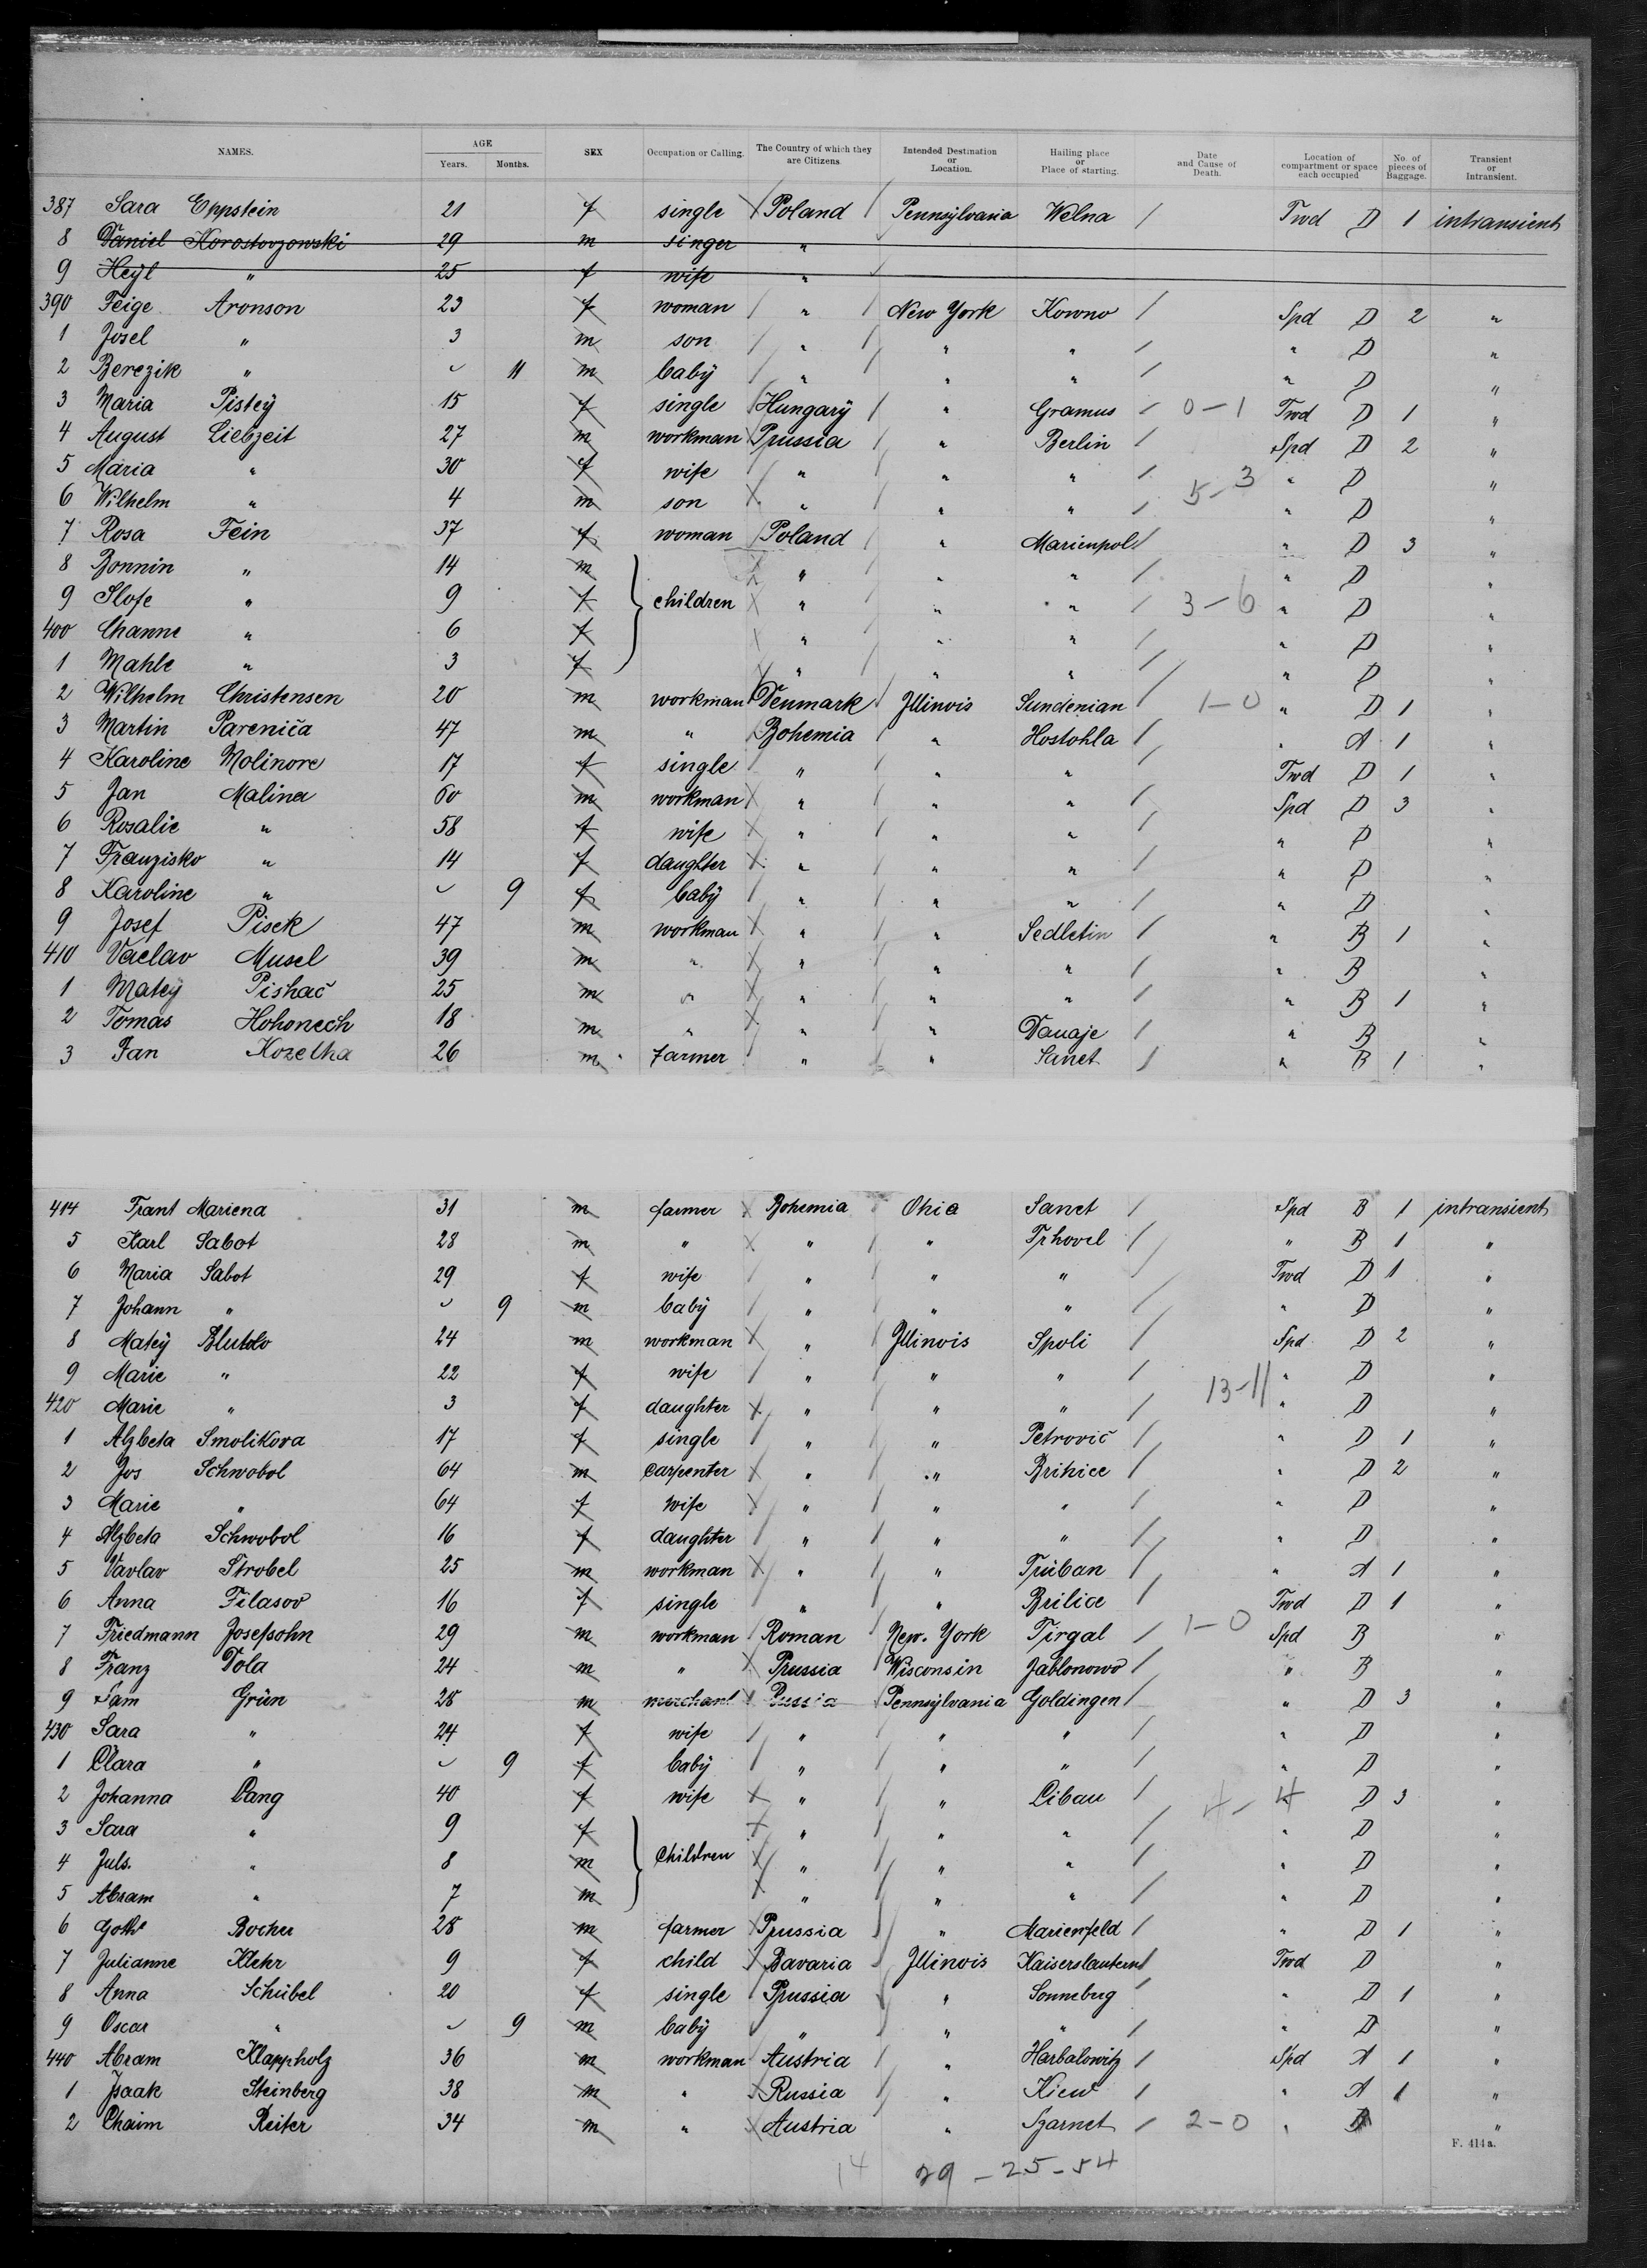 NAMES. AGE Years. Months. SEX Occupation or Calling. The Country of which they are Citizens. Intended Destination or Location. Hailing place or Place of starting. Date and Cause of Death. Location of compartment or space each occupied No. of pieces of Baggage. Transient or Intransient.
387 Sara Eppstein 21 f single Poland Pennsylvania Welna Twd D 1 intransient
8 Daniel Korostovzowski 29 m singer "
9 Heyl " 25 f wife "
390 Feige Aronson 23 f woman " New York Kowno Spd D 2 "
1 Josel " 3 m son " " " " D "
2 Berezik " 11 m baby " " " " D "
3 Maria Pistey 15 f single Hungary " Gramus 0-1 Twd D 1 "
4 August Liebzeit 27 m workman Prussia " Berlin Spd D 2 "
5 Maria " 30 f wife " " " 5-3 " D "
6 Wilhelm " 4 m son " " " " D "
7 Rosa Fein 37 f woman Poland " Marienpol " D 3 "
8 Bonnin " 14 m " " " " D "
9 Slofe " 9 f children " " " 3-6 " D "
400 Channe " 6 f " " " " D "
1 Mahle " 3 f " " " " D "
2 Wilhelm Christensen 20 m workman Denmark Illinois Sundenian 1-0 " D 1 "
3 Martin Pareniča 47 m " Bohemia " Hostohla " A 1 "
4 Karoline Molinore 17 f single " " " Twd D 1 "
5 Jan Malina 60 m workman " " " Spd D 3 "
6 Rosalie " 58 f wife " " " " D "
7 Franzisko " 14 f daughter " " " " D "
8 Karoline " 9 f baby " " " " D "
9 Josef Pisek 47 m workman " " Sedletin " B 1 "
410 Vaclav Musel 39 m " " " " " B "
1 Matey Pishač 25 m " " " " " B 1 "
2 Tomas Hohonech 18 m " " " Dauaje " B "
3 Jan Kozelha 26 m farmer " " Sanet " B 1 "
414 Frant Mariena 31 m farmer Bohemia Ohio Sanet Spd B 1 intransient
5 Karl Sabot 28 m " " " Trhovel " B 1 "
6 Maria Sabot 29 f wife " " " Twd D 1 "
7 Johann " 9 m baby " " " " D "
8 Matey Blutdo 24 m workman " Illinois Spoli Spd D 2 "
9 Marie " 22 f wife " " " 13-11 " D "
420 Marie " 3 f daughter " " " " D "
1 Alzbeta Smolikova 17 f single " " Petrovič " D 1 "
2 Jos Schwobol 64 m carpenter " " Brihice " D 2 "
3 Marie " 64 f wife " " " " D "
4 Alzbeta Schwobol 16 f daughter " " " " D "
5 Vavlav Strobel 25 m workman " " Trüban " A 1 "
6 Anna Filasov 16 f single " " Brilice Twd D 1 "
7 Friedmann Josefsohn 29 m workman Roman New York Tirgal 1-0 Spd B "
8 Franz Dola 24 m " Prussia Wisconsin Jablonowo " B "
9 Sam Grün 28 m merchant Russia Pennsylvania Goldingen " D 3 "
430 Sara " 24 f wife " " " " D "
1 Clara " 9 f baby " " " " D "
2 Johanna Lang 40 f wife " " Libau 4-4 D 3 "
3 Sara " 9 f " " " " D "
4 Juls. " 8 m Children " " " " D "
5 Abram " 7 m " " " " D "
6 Gothe Bocher 28 m farmer Prussia " Marienfeld " D 1 "
7 Julianne Klehr 9 f child Bavaria Illinois Kaiserslautern Twd D "
8 Anna Schübel 20 f single Prussia " Sonneburg " D 1 "
9 Oscar " 9 m baby " " " " D "
440 Abram Klappholz 36 m workman Austria " Harbalowitz Spd A 1 "
1 Isaak Steinberg 38 m " Russia " Kiew " A 1 "
2 Chaim Reiter 34 m " Austria " Szarnet 2-0 " "
F. 414a.
14 29-25-54